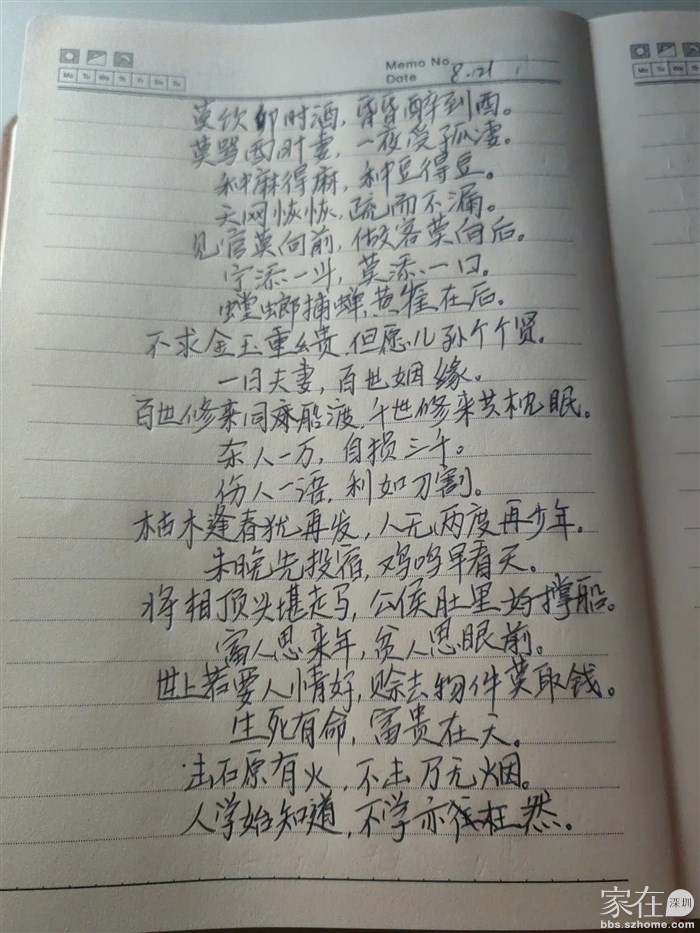 Memo No.
Mo Tu We Th Fr Sa Su
Date 8.21
莫饮卯时酒，昏昏醉到酉。
莫骂酉时妻，一夜受孤凄。
种麻得麻，种豆得豆。
天网恢恢，疏而不漏。
见官莫向前，做客莫向后。
宁添一斗，莫添一口。
螳螂捕蝉，黄雀在后。
不求金玉重重贵，但愿儿孙个个贤。
一日夫妻，百世姻缘。
百世修来同船渡，千世修来共枕眠。
杀人一万，自损三千。
伤人一语，利如刀割。
枯木逢春犹再发，人无两度再少年。
未晚先投宿，鸡鸣早看天。
将相顶头堪走马，公侯肚里好撑船。
富人思来年，贫人思眼前。
世上若要人情好，赊去物件莫取钱。
生死有命，富贵在天。
击石原有火，不击乃无烟。
人学始知道，不学亦枉然。
家在深圳
bbs.szhome.com